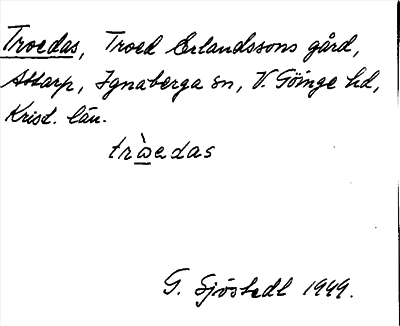 Troedas, Troed Erlandssons gård,
Attarp, Ignaberga sn, V. Göinge hd,
Krist. län.
tròedas
G. Sjöstedt 1949.